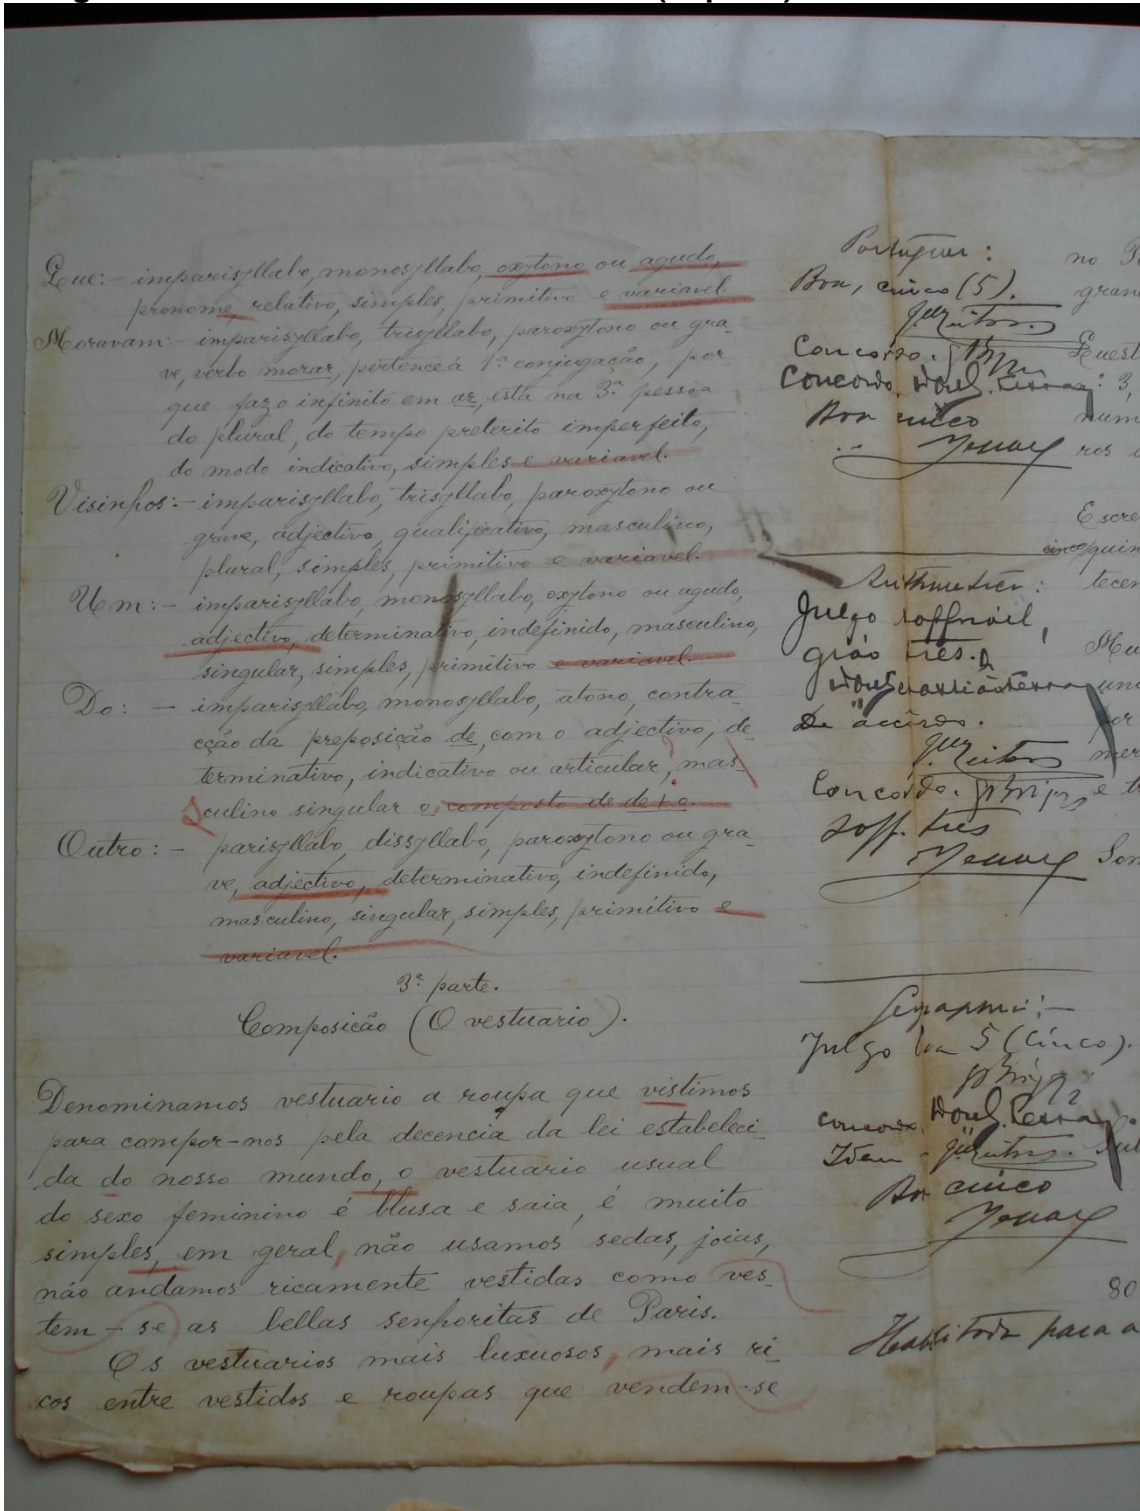 Que: - imparisyllabo, monosyllabo, oxytono ou agudo,
pronome, relativo, simples, primitivo e variavel.
Moravam: - imparisyllabo, trisyllabo, paroxytono ou gra-
ve, verbo morar, pertence á 1ª conjugação, por
que faz o infinito em ar, está na 3ª pessôa
do plural, do tempo preterito imperfeito,
do modo indicativo, simples e variavel.
Visinhos: - imparisyllabo, trisyllabo, paroxytono ou
grave, adjectivo, qualificativo, masculino,
plural, simples, primitivo e variavel.
Um: - imparisyllabo, monosyllabo, oxytono ou agudo,
adjectivo, determinativo, indefinido, masculino,
singular, simples, primitivo e variavel.
Do: - imparisyllabo, monosyllabo, atono, contra-
cção da preposição de, com o adjectivo, de-
terminativo, indicativo ou articular, mas-
culino singular e, composto de de + o.
Outro: - parisyllabo, dissyllabo, paroxytono ou gra-
ve, adjectivo, determinativo, indefinido,
masculino, singular, simples, primitivo e
variavel.
3ª parte.
Composição (O vestuario).
Denominamos vestuario a roupa que vistimos
para compor-nos pela decencia da lei estabeleci-
da do nosso mundo, o vestuario usual
do sexo feminino é blusa e saia, é muito
simples, em geral, não usamos sedas, joias,
não andamos ricamente vestidas como ves-
tem-se as bellas senhoritas de Paris.
Os vestuarios mais luxuosos, mais ri-
cos entre vestidos e roupas que vendem-se
Portuguez:
Boa, cinco (5).
Concordo.
Concordo.
Boa cinco
Arithmetica:
Julgo soffrivel,
gráo três.
De accôrdo.
Concordo.
Soff. três
Geographia: -
Julgo boa 5 (cinco).
Concordo.
Idem -
Boa cinco
80
Habilitada para a
no
gran
Quest
: 3,
num
ros
Escre
cinco quin
tecen
por
mer
e
Son